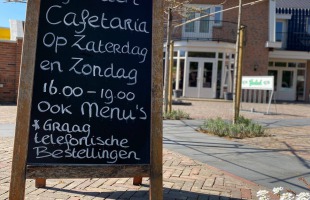 Cafetaria
Op Zaterdag
en Zondag
16.00 - 19.00
Ook Menu's
* Graag
telefonische
Bestellingen